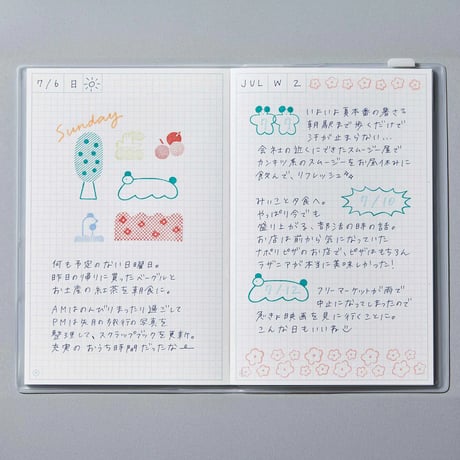 7/6 日
Sunday
何も予定のない日曜日。
昨日の帰りに買ったベーグルと
お土産の紅茶を朝食に。
AMはのんびりまったり過ごして
PMは先月の旅行の写真を
整理して、スクラップブックを更新。
充実のおうち時間だったな
JUL W 2
7/7
いよいよ夏本番の暑さで
朝駅まで歩くだけで
汗が止まらない…
会社の近くにできたスムージー屋で
カンキツ系のスムージーをお昼休みに
飲んで、リフレッシュ
みいこと夕食へ。
やっぱり今でも
盛り上がる、部活の時の話。
お店は前から気になっていた
ナポリピザのお店で、ピザはもちろん
ラザニアが本当に美味しかった!
7/10
7/12
フリーマーケットが雨で
中止になってしまったので
急きょ映画を見に行くことに。
こんな日もいいね